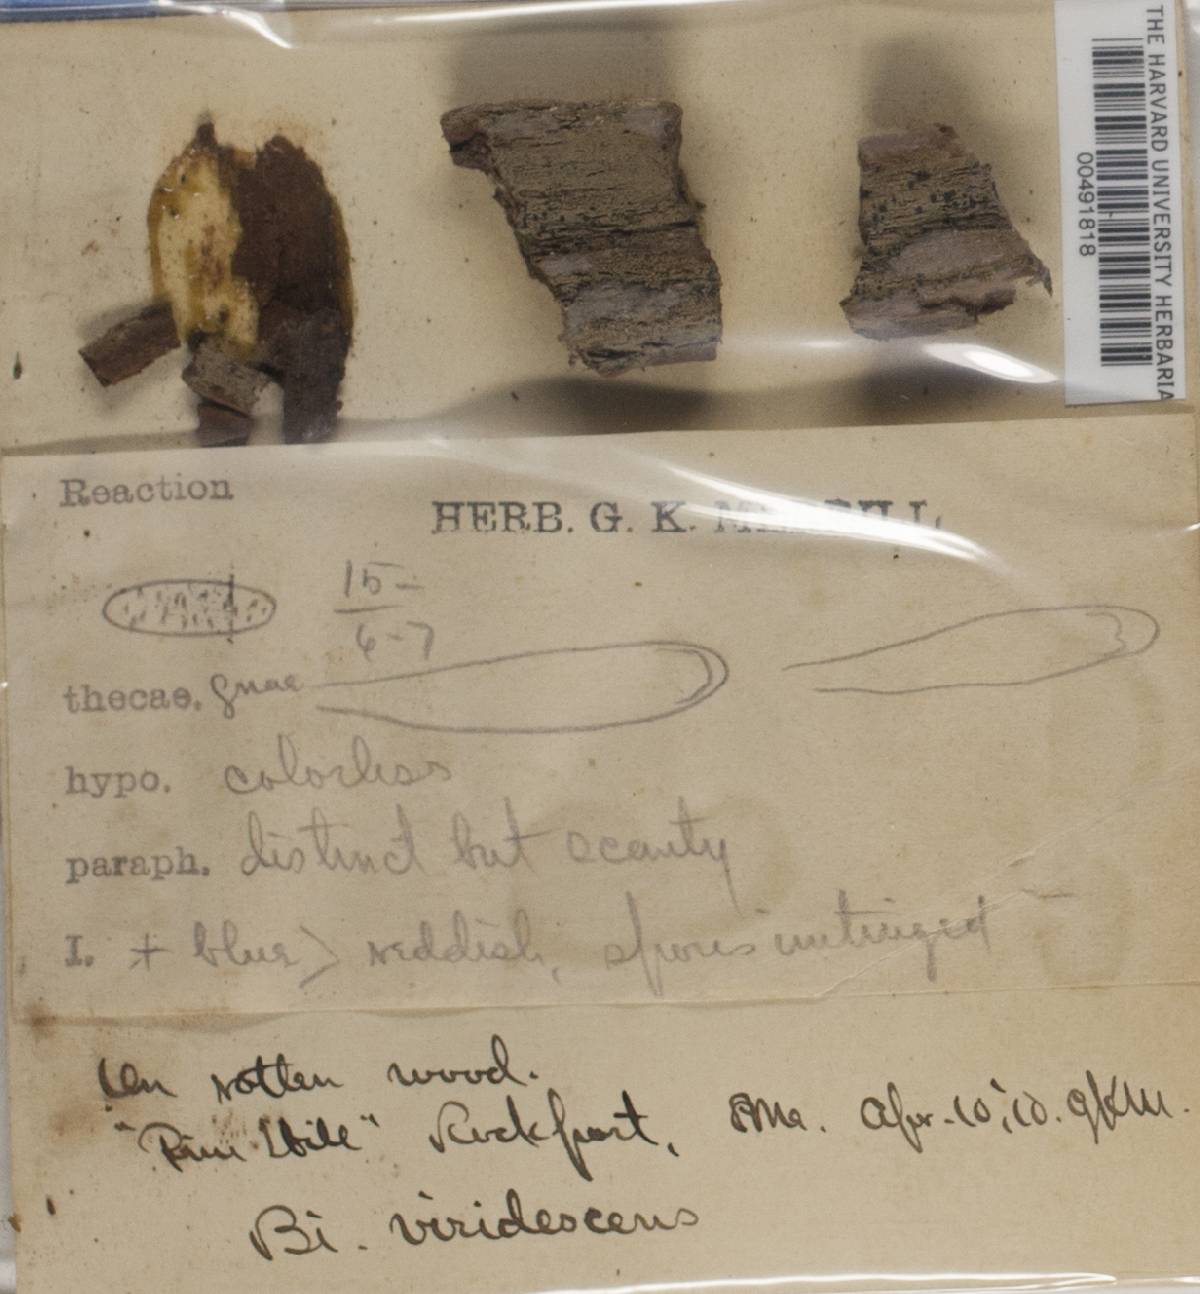 THE HARVARD UNIVERSITY HERBARIA
00491818
Reaction
HERB. G. K. MERRILL
15-
6-7
thecae.
hypo. colorless
paraph. distinct but scanty
I. + blue > reddish, spores untinged -
On rotten wood.
"Pine Hill" Rockport, Me. Apr. 10, '10. GKM.
Bi. viridescens